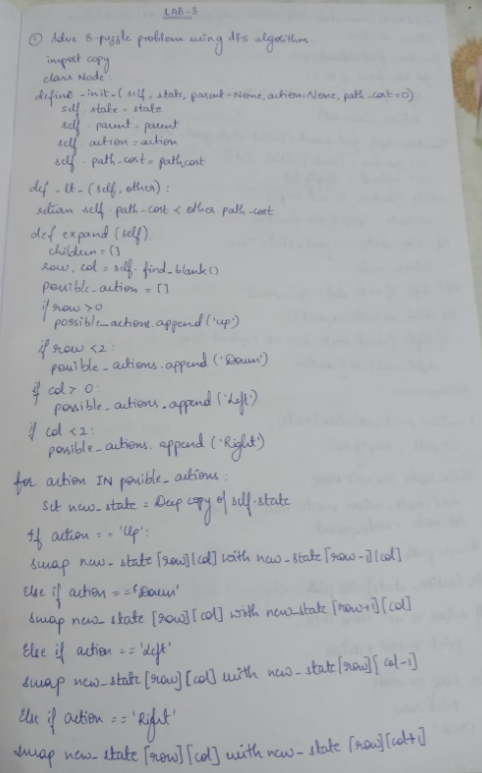 LAB-3
① Solve 8-puzzle problem using dfs algorithm
import copy
class Node
define -init-(self, state, parent=None, action=None, path_cost=0)
self. state = state
self. parent = parent
self action = action
self. path_cost = pathcost
def -lt-(self, other):
return self. path-cost < other path-cost
def expand (self)
children = []
row, col = self. find_blank()
possible_action = []
if row >0
possible_actions.append('up')
if row <2:
possible_actions.append('Down')
if col > 0:
possible_actions.append('Left')
if col <2:
possible_actions. append ('Right')
for action IN possible_actions:
Set new_state = Deep copy of self.state
If action == 'Up':
swap new_state [row][col] with new_state [row-1][col]
Else if action =='Down'
swap new_state [row][col] with new state [row+1][col]
Else if action == 'left'
swap new_state [row][col] with new_state [row][col-1]
Else if action == 'Right'
swap new_state [row][col] with new_state [row][col+1]